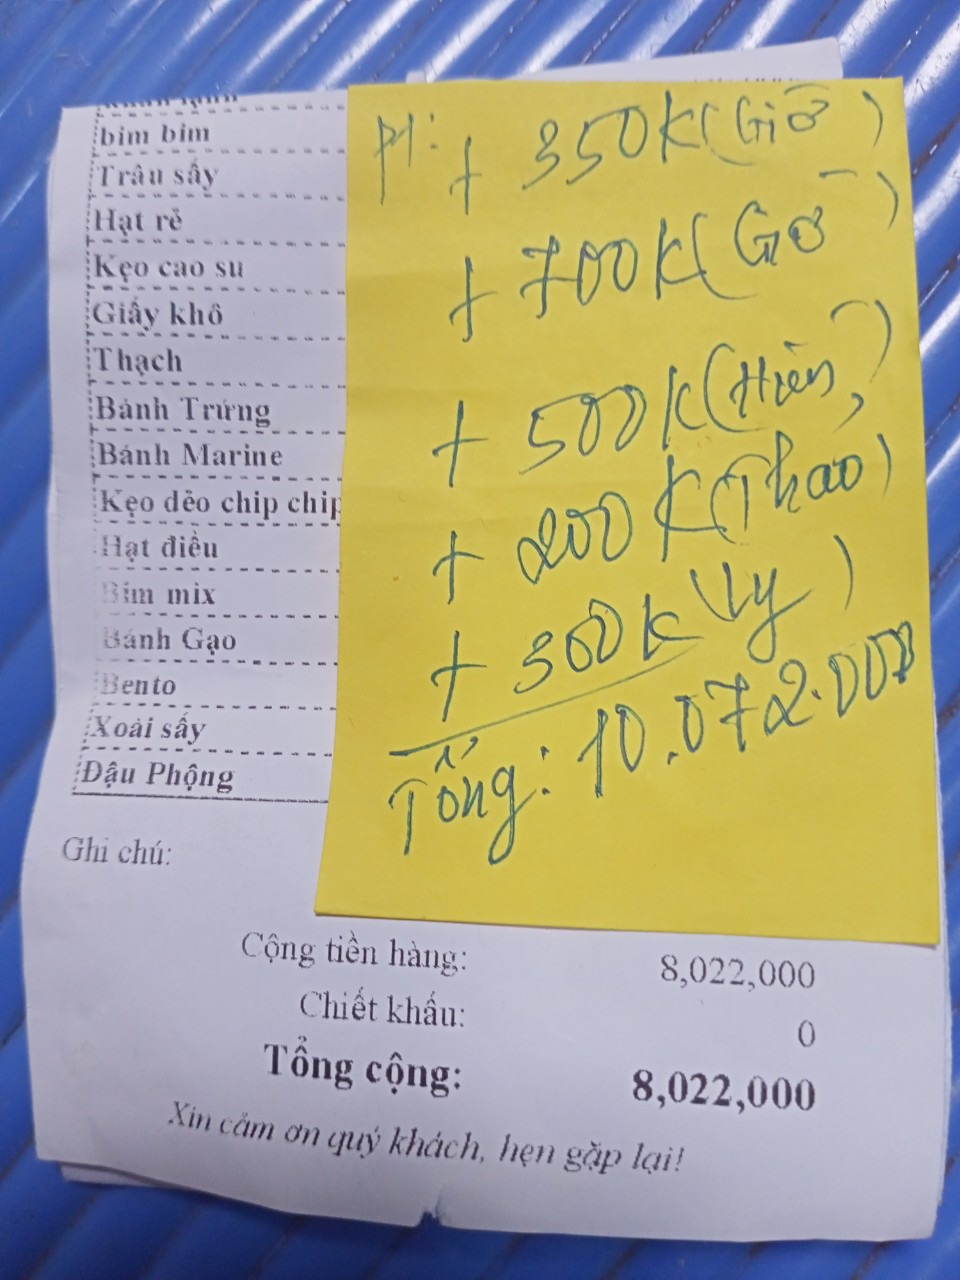 bim bim
Trâu sấy
Hạt rẻ
Kẹo cao su
Giấy khô
Thạch
Bánh Trứng
Bánh Marine
Kẹo dẻo chip chip
Hạt điều
Bim mix
Bánh Gạo
Bento
Xoài sấy
Đậu Phộng
+ 350K (Giờ)
+ 700K (Giờ)
+ 500K (Hiên)
+ 200K (Thao)
+ 300K (Ly)
Tổng: 10.072.000
Ghi chú:
Cộng tiền hàng: 8,022,000
Chiết khấu: 0
Tổng cộng: 8,022,000
Xin cảm ơn quý khách, hẹn gặp lại!